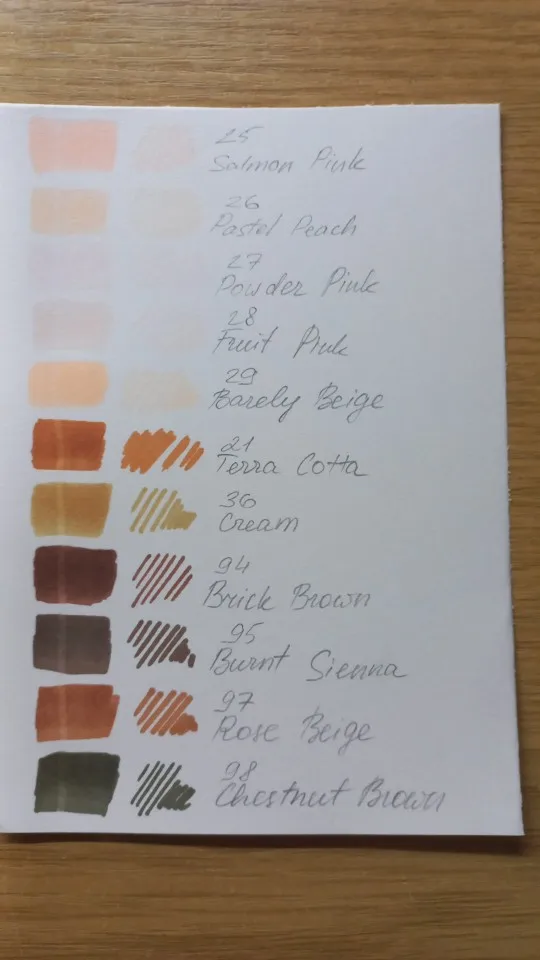 25
Salmon Pink
26
Pastel Peach
27
Powder Pink
28
Fruit Pink
29
Barely Beige
21
Terra Cotta
36
Cream
94
Brick Brown
95
Burnt Sienna
97
Rose Beige
98
Chestnut Brown